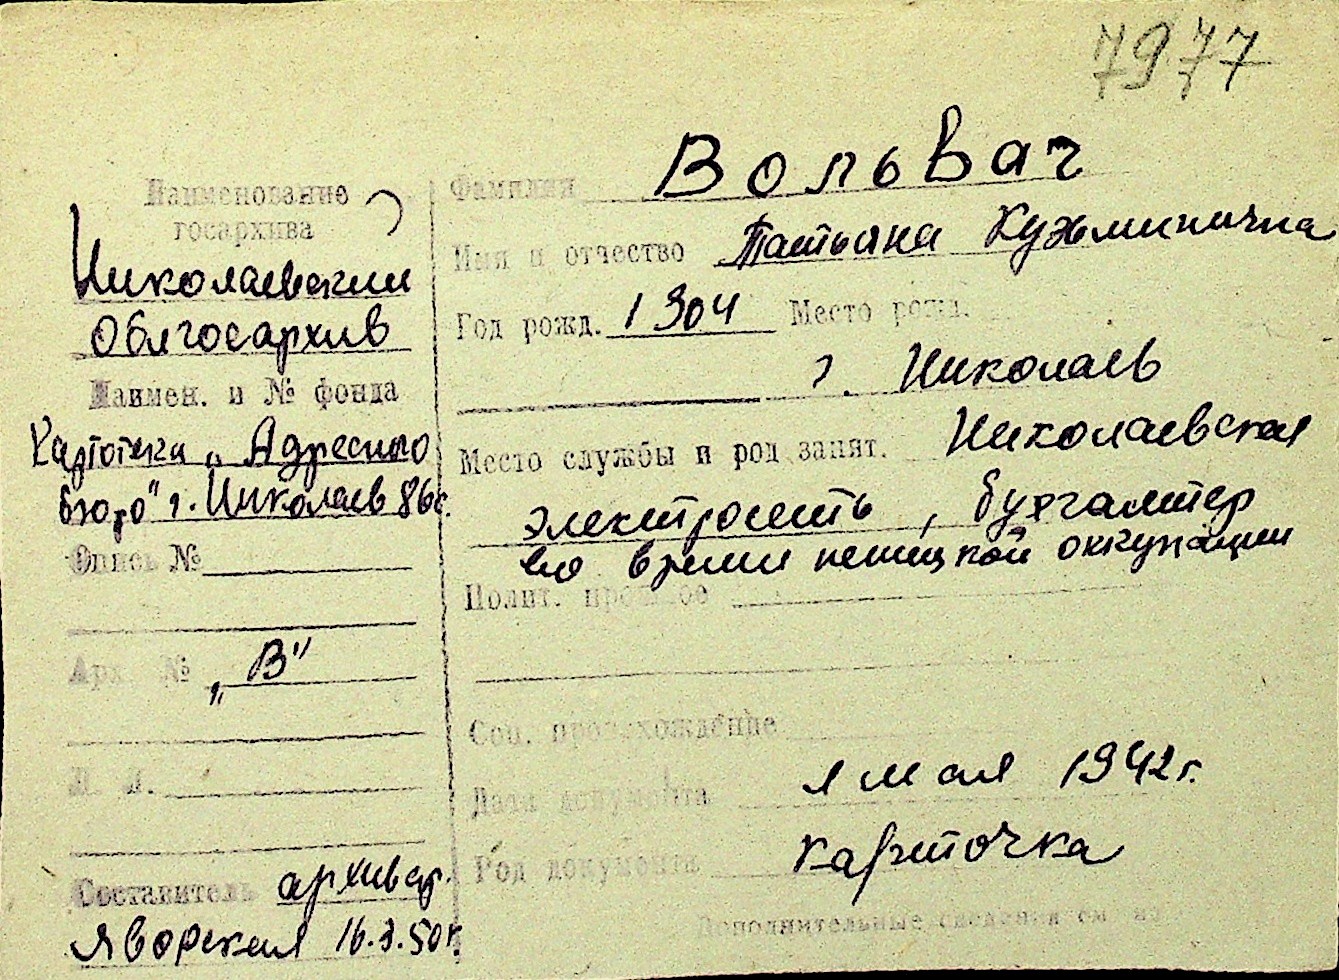 7977
Наименование
госархива
Николаевский
Облгосархив
Наимен. и № фонда
Картотека „Адресного
бюро" г. Николаев 86с.
Опись №
Арх. № „В"
Л. Л.
Составитель архивар.
Яворская 16.3.50г.
Фамилия Вольвач
Имя и отчество Татьяна Кузьминична
Год рожд. 1904 Место рожд.
г. Николаев
Место службы и род занят. Николаевская
электросеть, бухгалтер
во время немецкой оккупации
Полит. прошлое
Соц. происхождение
Дата документа 1 мая 1942 г.
Род документа карточка
Дополнительные сведения см на